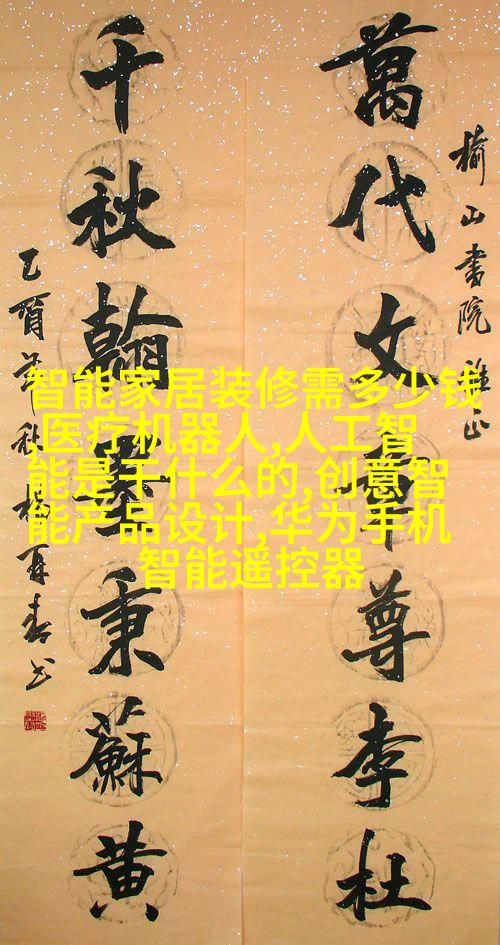 榆山書院雅正
萬代文章尊李杜
千秋翰墨秉蘇黄
乙酉年秋楊再春书
智能家居装修需多少钱
,医疗机器人,人工智
能是干什么的,创意智
能产品设计,华为手机
智能遥控器